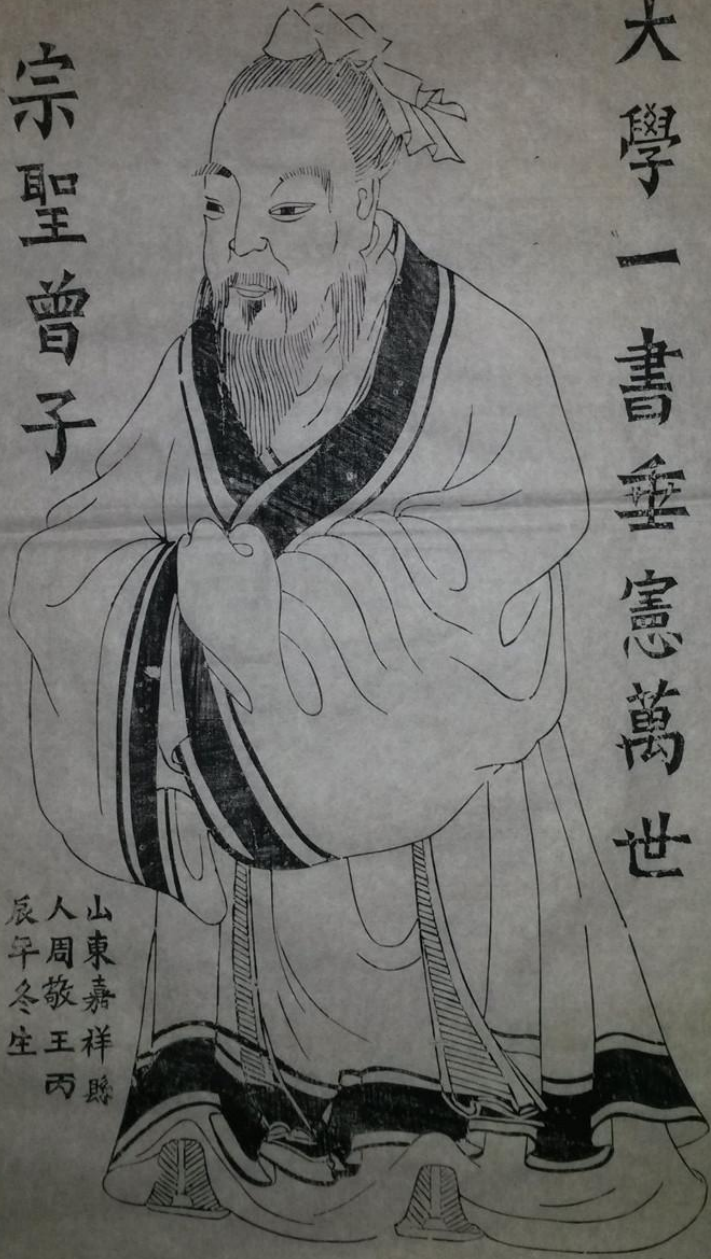 大學一書垂憲萬世
宗聖曾子
山東嘉祥縣
人周敬王丙
辰年冬生